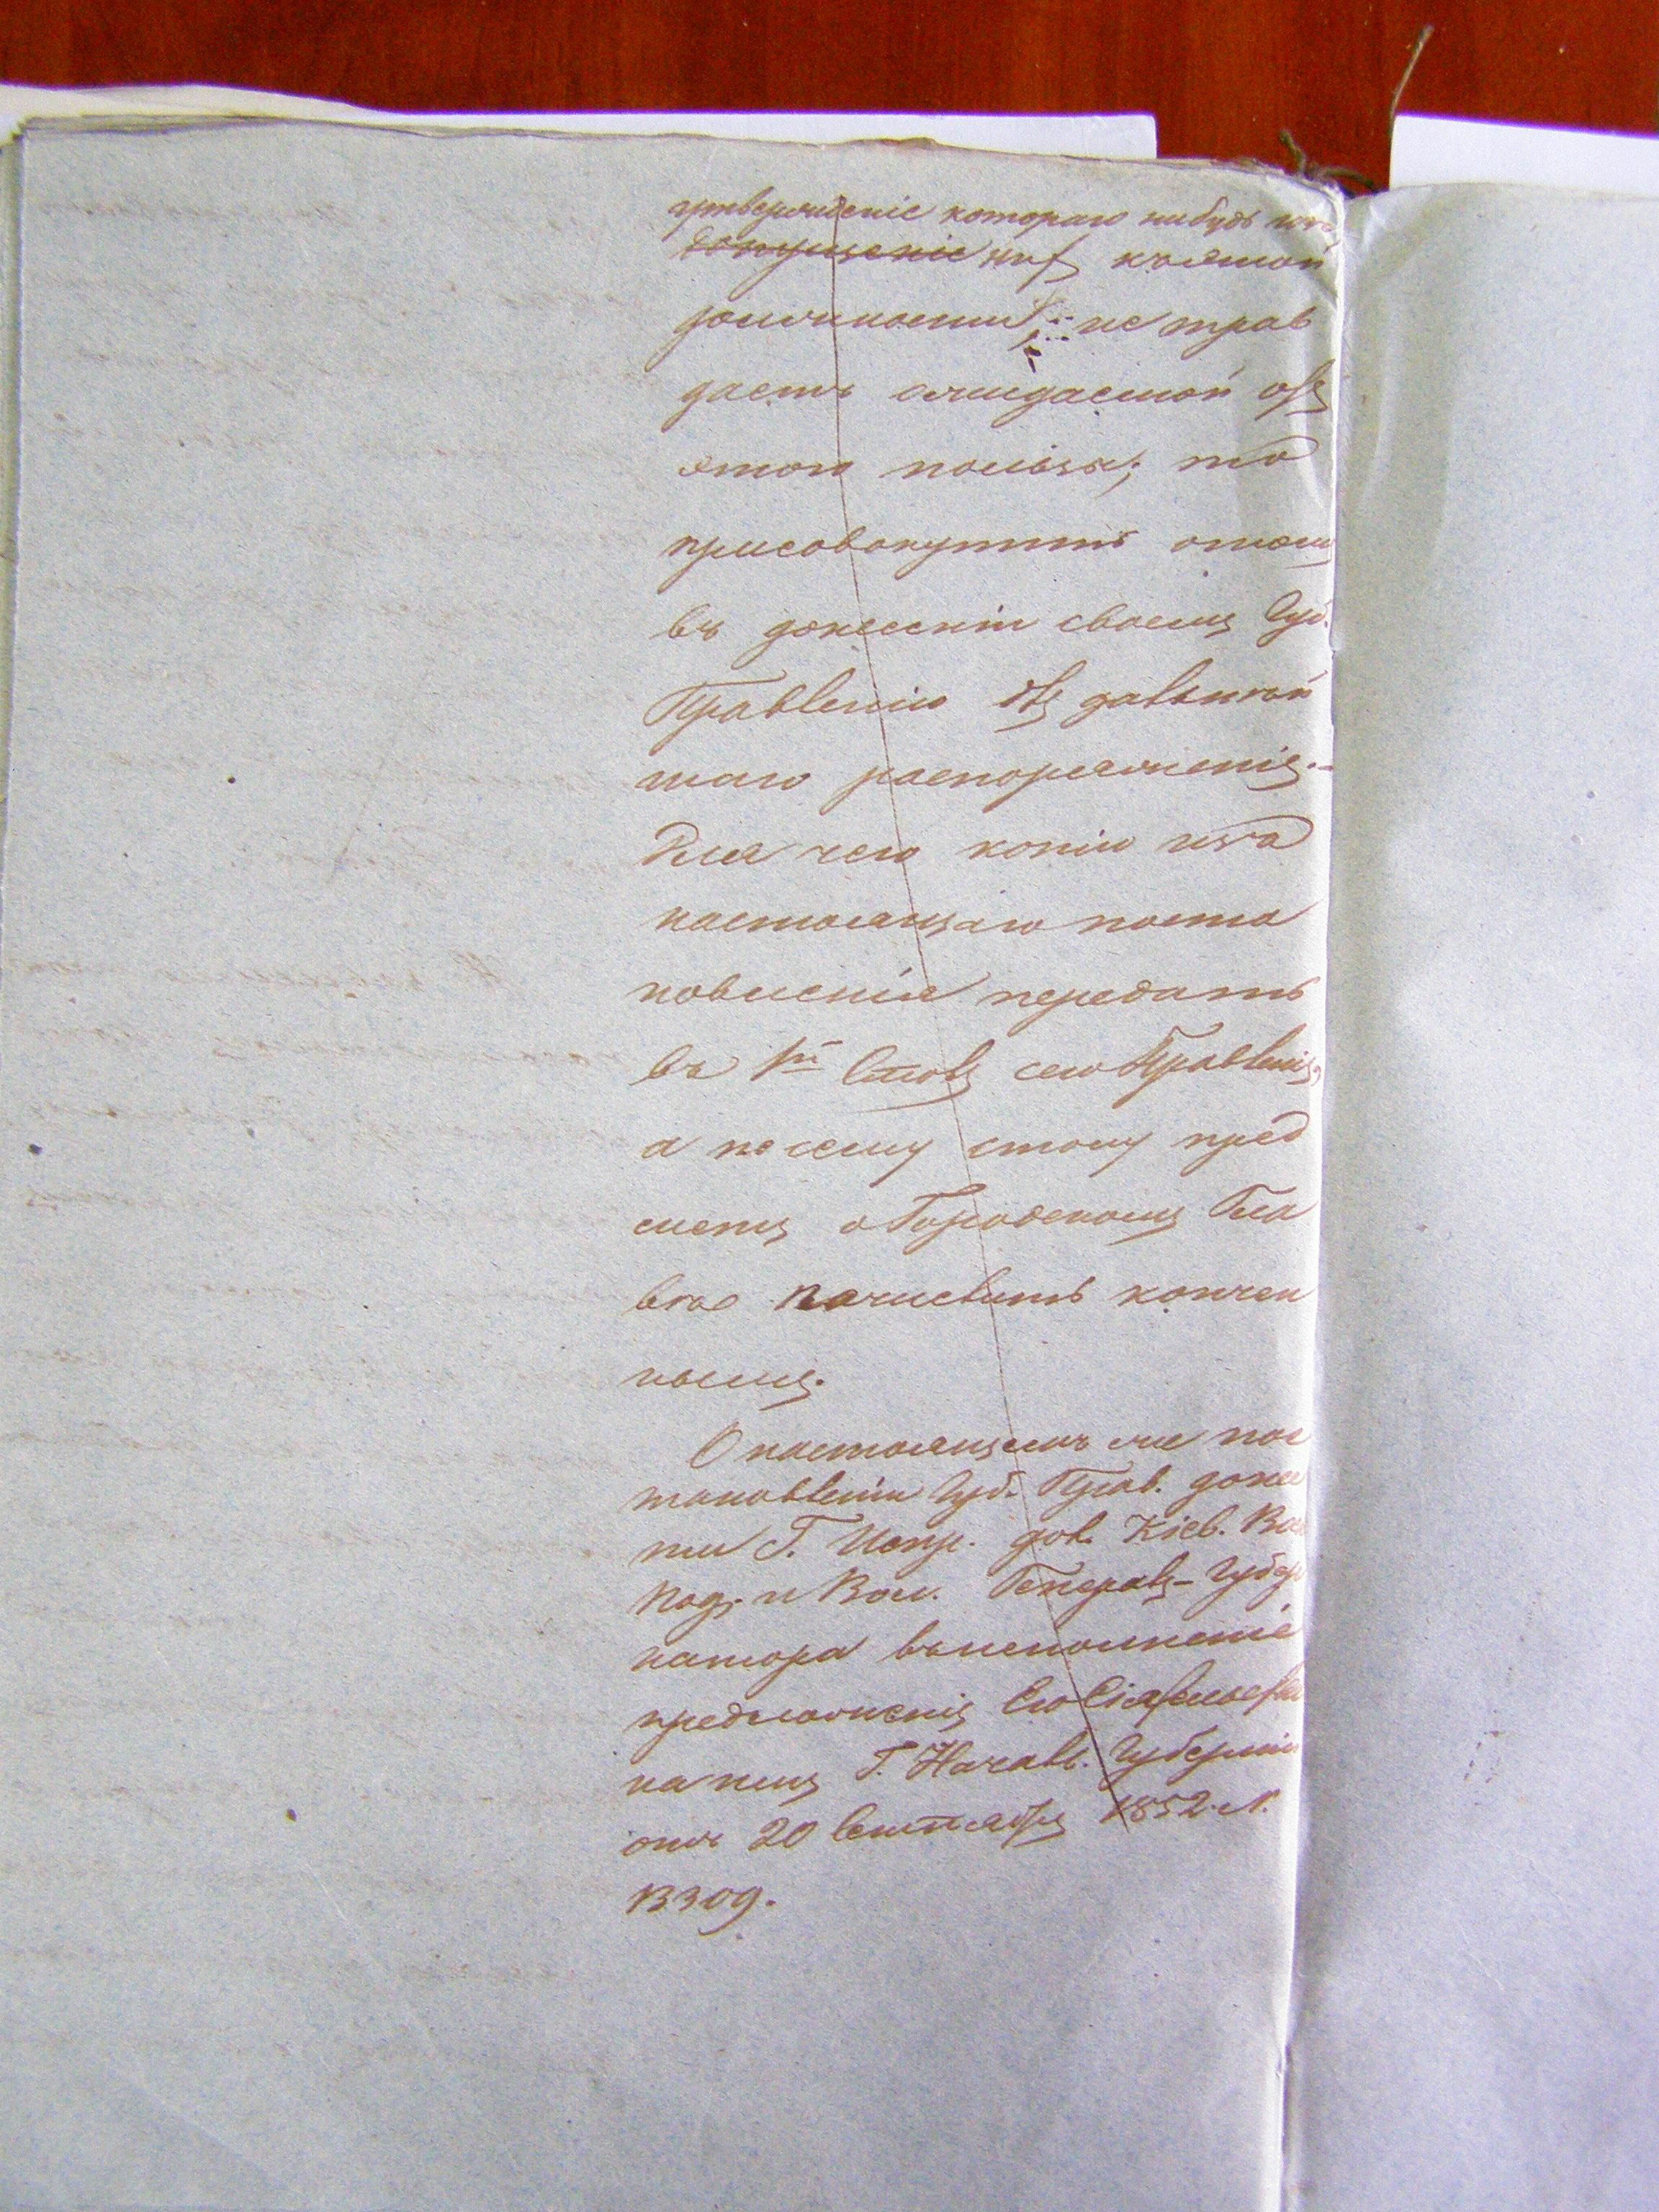 утвержденіе котораго нибудь изъ
допущеніе ихъ къ этой
должности не прав
даетъ ожидаемой отъ
этого пользы; то
присовокупить о томъ
въ донесеніи своемъ Губ.
Правленію для дальнѣй
шаго распоряженія. –
Для чего копію изъ
настоящаго поста
новленія передать
въ 1й Столъ сего Правленія,
а по сему столу пред
метъ о Городскомъ Гла
вѣ зачислить кончен
нымъ.
О настоящемъ же пос
тановленіи Губ. Прав. доне
сти Г. Испр. дол. Кіев. Вое
Под. и Вол. Генералъ-Губер
натора въ исполненіе
предложенія Его Сіятельства
на имя Г. Начал. Губерніи
отъ 20 Сентября 1852 N.
13309.